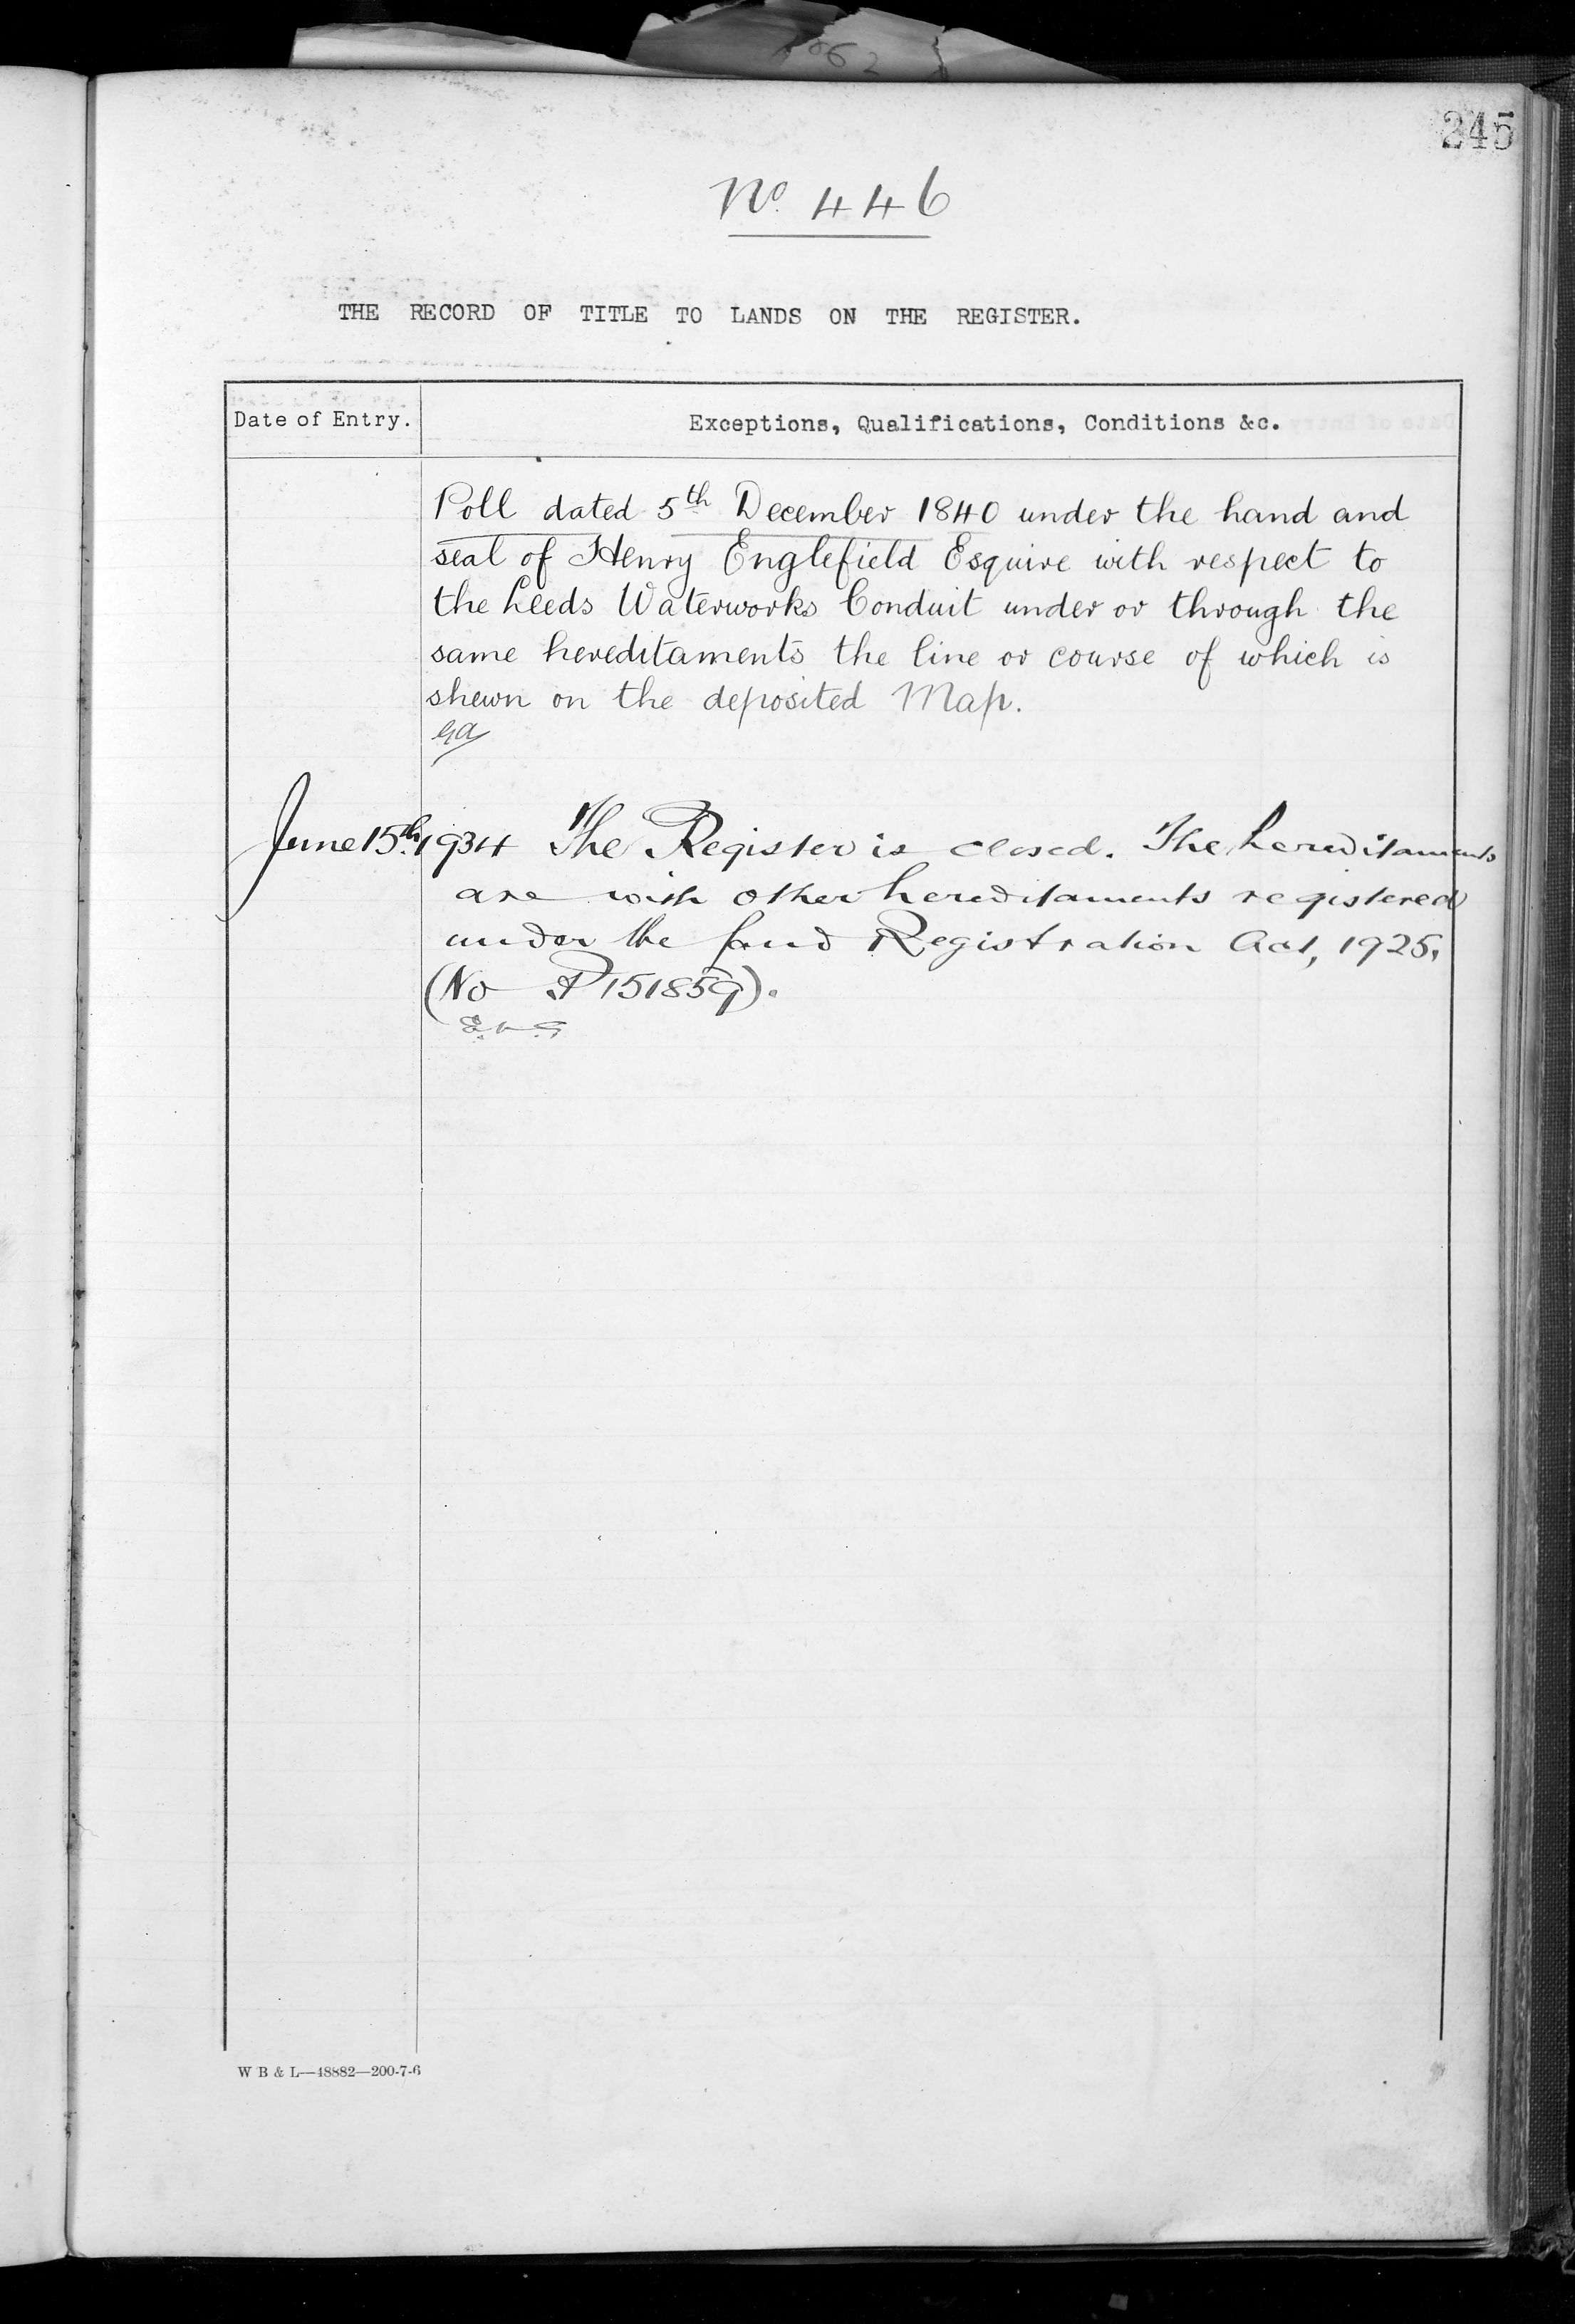 245
No. 446
THE RECORD OF TITLE TO LANDS ON THE REGISTER.
Date of Entry. Exceptions, Qualifications, Conditions &c.
Poll dated 5th December 1840 under the hand and
seal of Henry Englefield Esquire with respect to
the Leeds Waterworks Conduit under or through the
same hereditaments the line or course of which is
shewn on the deposited Map.
June 15th. 1934 The Register is closed. The hereditaments
are with other hereditaments registered
under the Land Registration Act, 1925.
(No P151859).
W B & L—48882—200-7-6